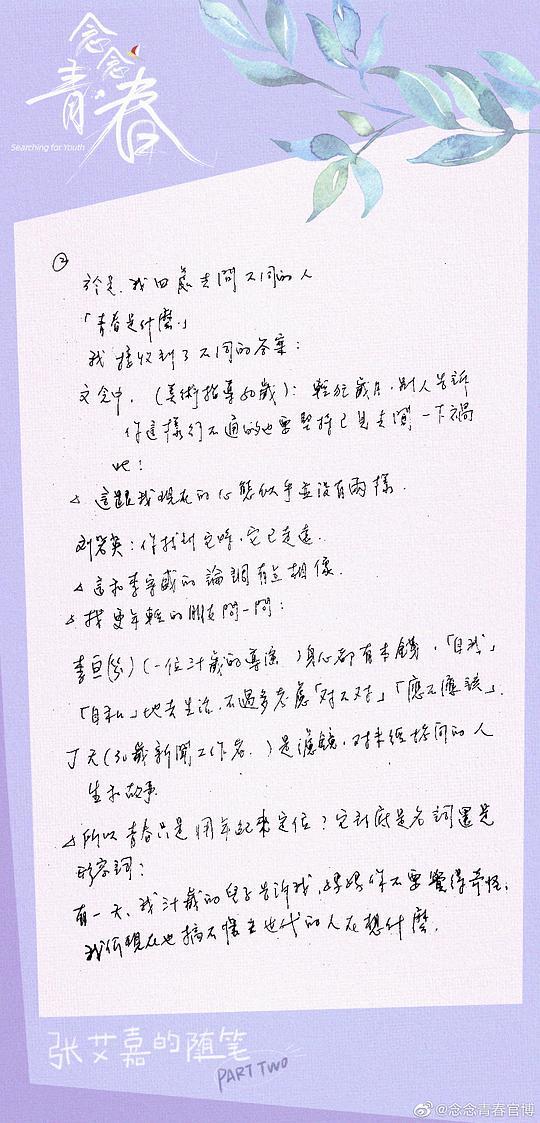 念念
青春
Searching for Youth
②
於是，我四處去問不同的人
「青春是什麼」
我接收到了不同的答案：
文念中，(美術指導50歲)：輕狂歲月，別人告訴
你這樣行不通的也要堅持己見去闖一下禍
吧！
△ 這跟我現在的心態似乎並沒有兩樣．
刘若英：你找到它時，它已走遠．
△ 這和李宗盛的論調有点相像．
△ 找更年輕的朋友問一問：
(一位卅歲的導演)身心都有本錢，「自我」
「自私」地去生活，不過多考慮「对不对」「應不應該」．
丁天(30歲新聞工作者)是濾鏡，对未經世间的人
生和故事．
△ 所以青春只是用年紀來定位？它到底是名詞還是
形容詞？
有一天，我卅歲的兒子告訴我，媽媽你不要覺得奇怪，
我们現在也搞不懂廿世代的人在想什麼．
张艾嘉的随笔
PART TWO
@念念青春官博